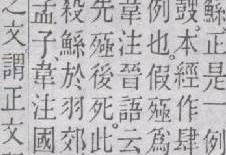 鯀正是一例
本經作肆
例也。假殛爲
韋注晉語云
先殛後死。此
殺鯀於羽郊
孟子韋注國
之文謂正文